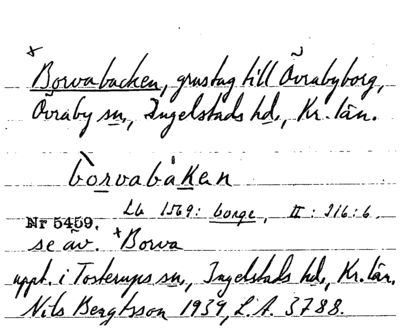 x
Borvabacken, grustag till Övrabyborg,
Övraby sn, Ingelstads hd, Kr. län.
bòrvabåKen
Lb 1569: borge, II: 216:6.
Nr 5459.
se äv. x Borva
uppt. i Tosterups sn, Ingelstads hd, Kr. län.
Nils Bengtsson 1939, L.A. 3788.